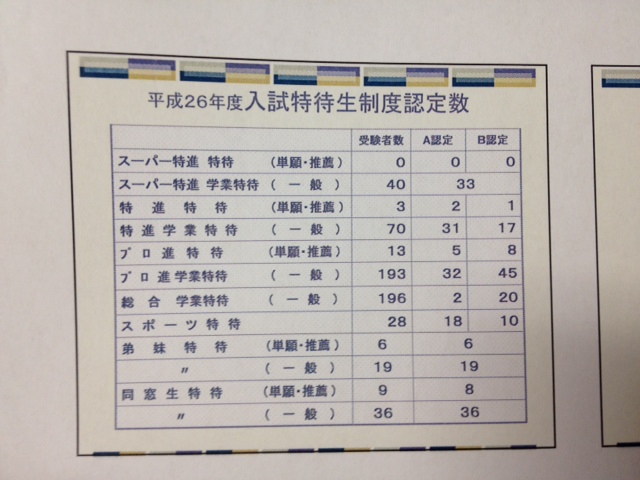 平成26年度入試特待生制度認定数
受験者数 A認定 B認定
スーパー特進 特待 (単願・推薦) 0 0 0
スーパー特進 学業特待 ( 一 般 ) 40 33
特 進 特 待 (単願・推薦) 3 2 1
特 進 学 業 特 待 ( 一 般 ) 70 31 17
プ ロ 進 特 待 (単願・推薦) 13 5 8
プ ロ 進 学業特待 ( 一 般 ) 193 32 45
総 合 学業特待 ( 一 般 ) 196 2 20
ス ポ ー ツ 特 待 28 18 10
弟 妹 特 待 (単願・推薦) 6 6
〃 ( 一 般 ) 19 19
同 窓 生 特 待 (単願・推薦) 9 8
〃 ( 一 般 ) 36 36